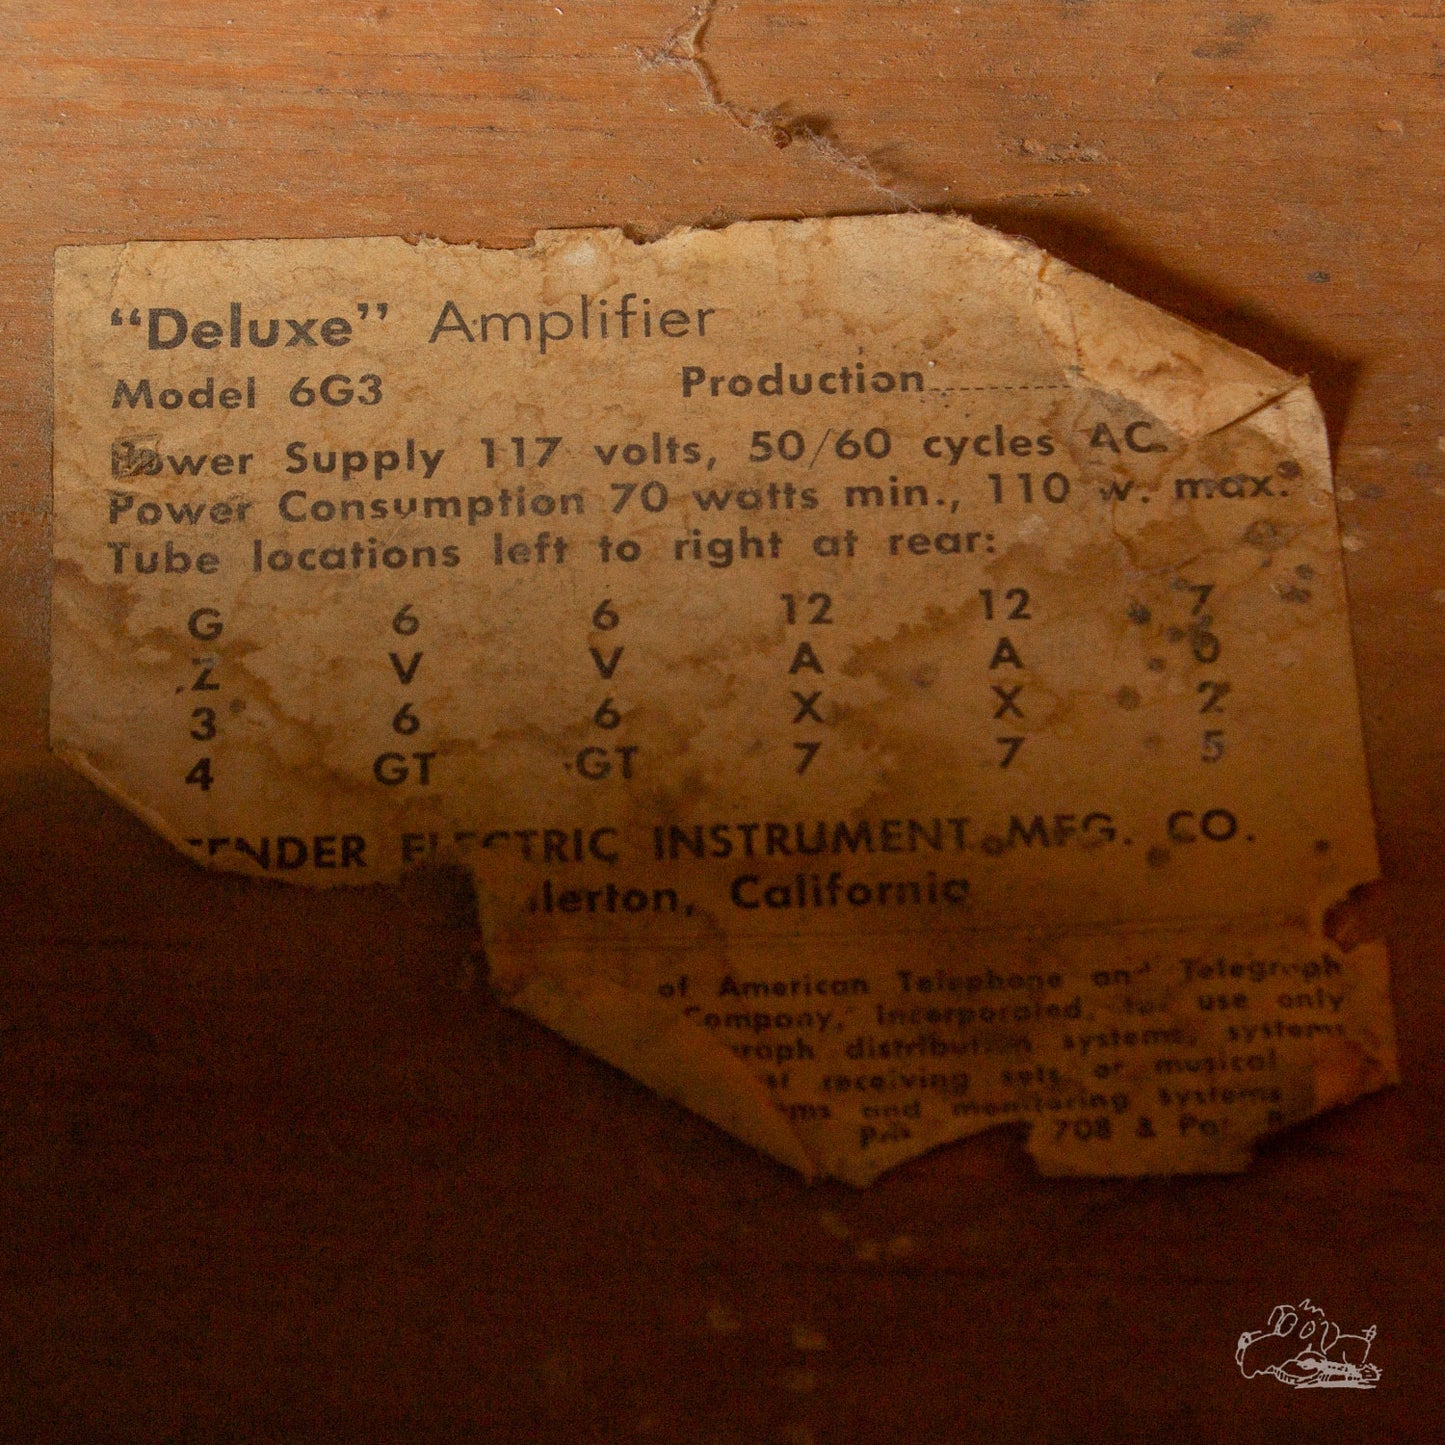 “Deluxe” Amplifier
Model 6G3 Production
Power Supply 117 volts, 50/60 cycles AC
Power Consumption 70 watts min., 110 w. max.
Tube locations left to right at rear:
G 6 6 12 12 7
Z V V A A 0
3 6 6 X X 2
4 GT GT 7 7 5
FENDER ELECTRIC INSTRUMENT MFG. CO.
llerton, California
of American Telephone and Telegraph
Company, Incorporated, for use only
graph distribution systems, systems
receiving sets or musical
ems and monitoring systems
708 & Pat